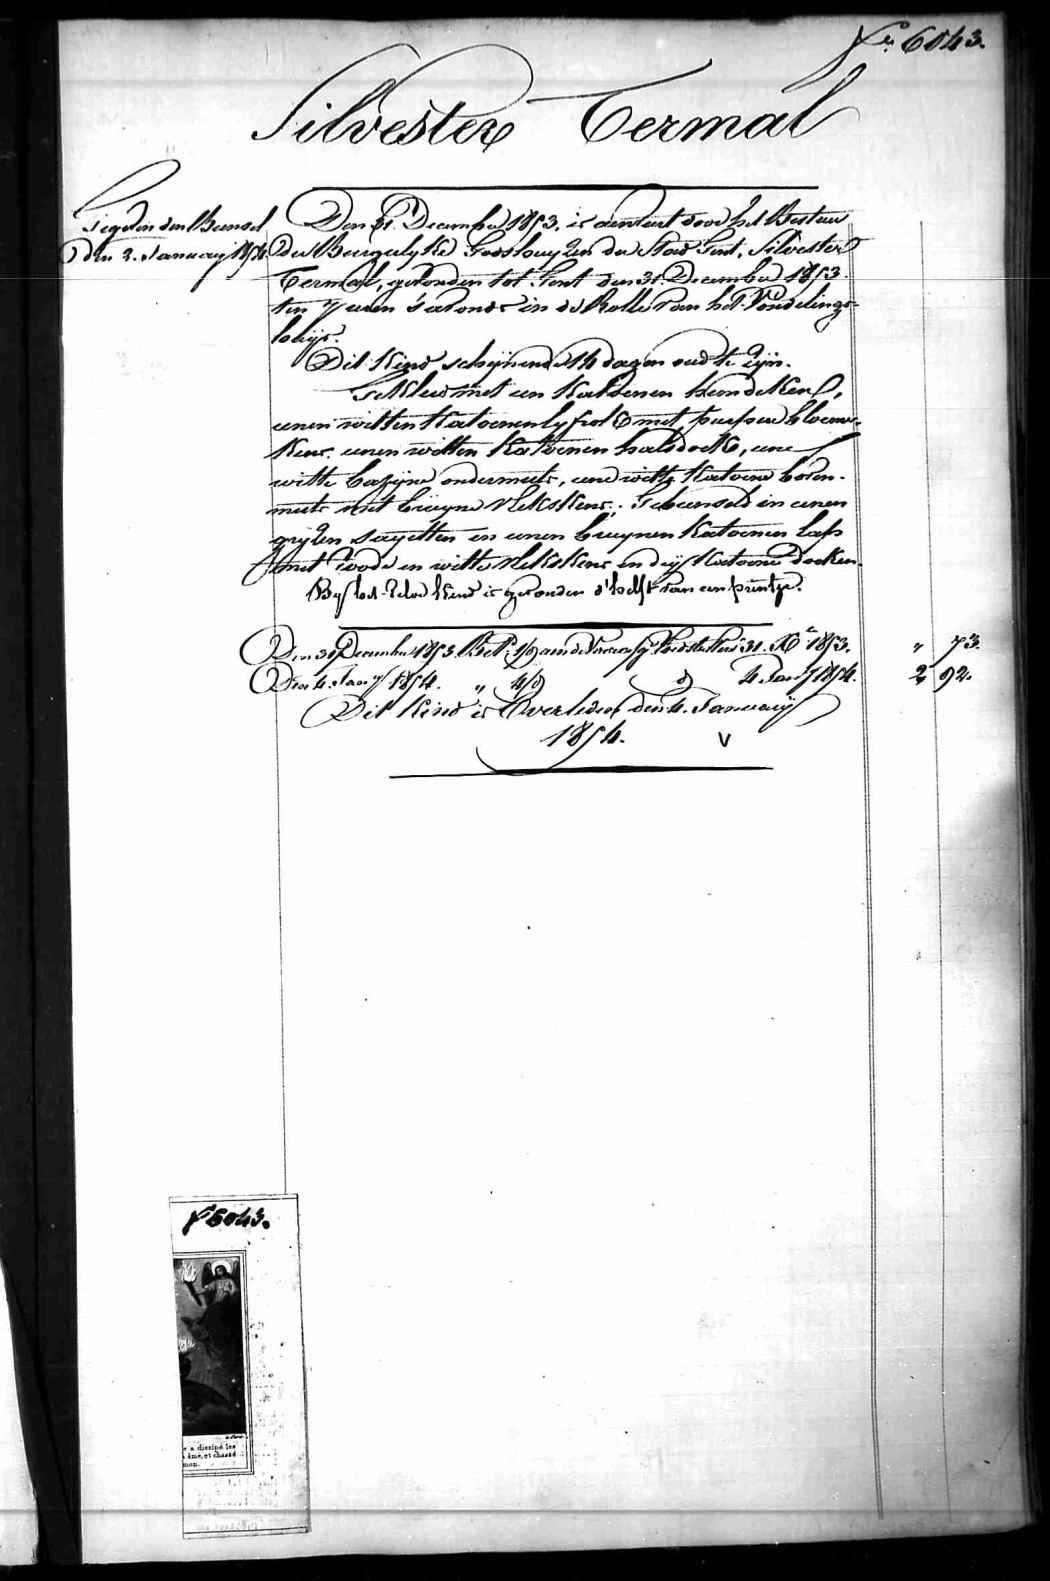 N.° 6043.
Silvester Termal
Den 31. December 1853. is aenveert door het Bestuur
der Burgelyke Godshuyzen der Stad Gent, Silvester
Termal, gevonden tot Gent den 31. December 1853.
ten 7 uren 's avonds in de Rolle van het Vondelings-
huijs.
Dit Kind schijnende 14 dagen oud te zijn.
Gekleed met een Katoenen hemdeken,
eenen witten Katoenen lyfrok met purpere bloem-
kens, eenen witten Katoenen halsdoek, eene
witte bazijne ondermuts, eene witte Katoene boven-
muts met bruyne vlekskens; Gebunseld in eenen
gryzen sayetten en eenen bruynen Katoenen laps
met roode en witte vlekskens en dry Katoene doeken.
By het zelve Kind is gevonden d'helft van een printje.
in den Bunsel
den 2. January 1854
Den 31 December 1853. 31. X.e 1853. " 73.
Den 4. Jan.y 1854. " 4. Jan.y 1854. 2 92.
Dit Kind is Overleden den 4. January
1854. V
N.° 6043.
e a dissipé les
âme, et chassé
mon.